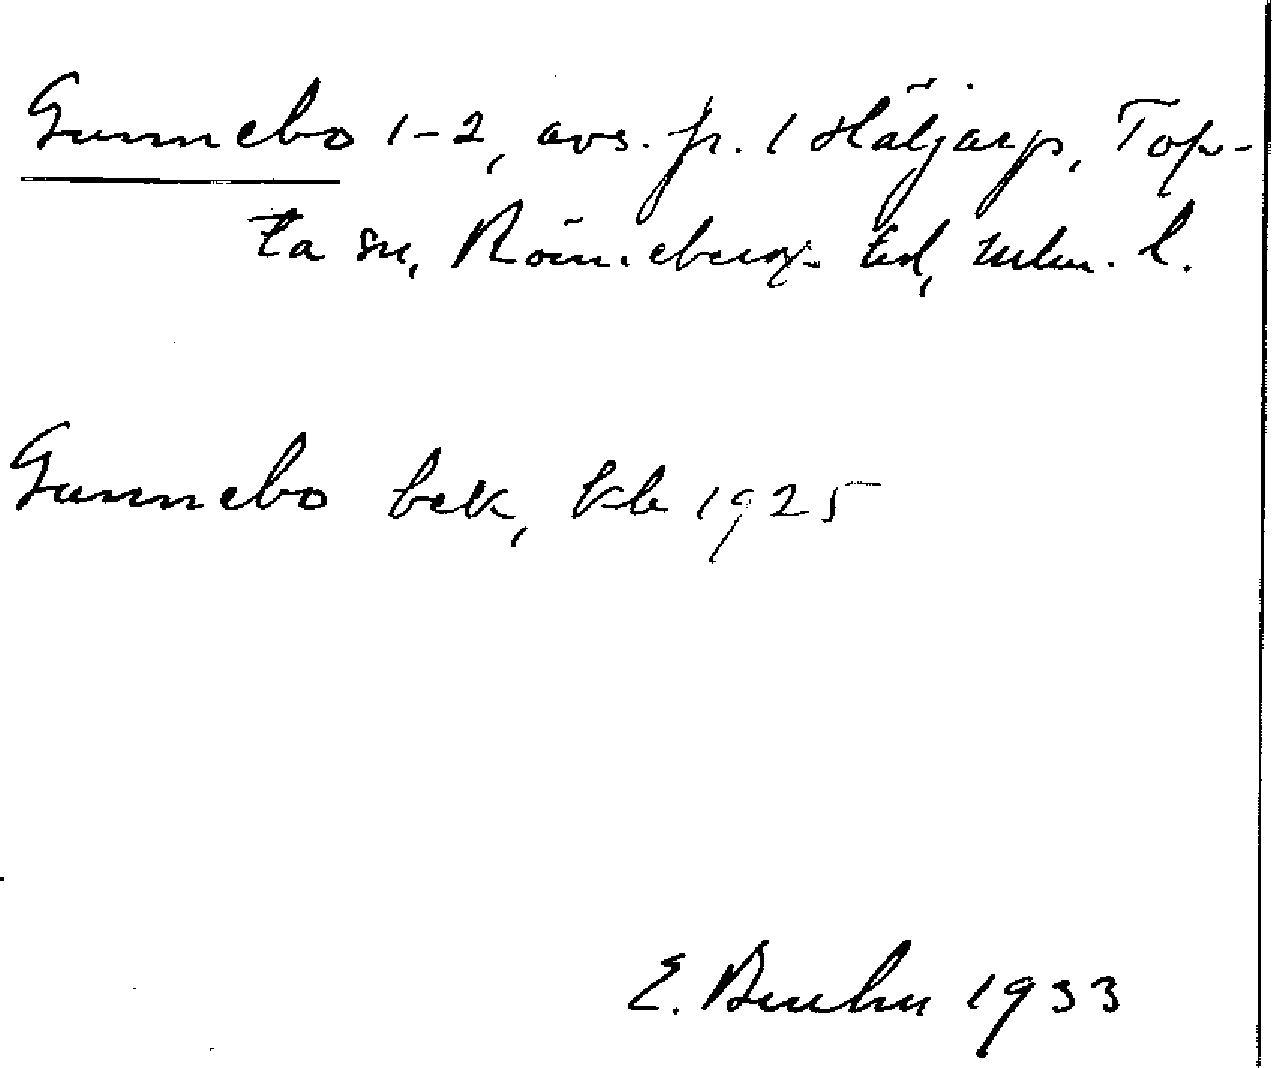 Gunnebo 1-2, avs. fr. 1 Häljarp, Top-
ta sn, Rönnebergs hd, Mlm. l.
Gunnebo bek, kb 1925
E. Bruhn 1933